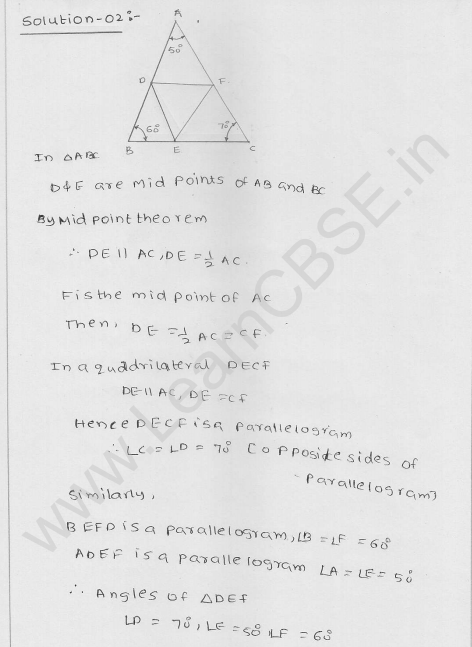 Solution-02:-
A
50°
D
F
60°
70°
B
E
C
In △ABC
D & E are mid points of AB and BC
By Mid point theorem
∴ DE || AC, DE = ½ AC.
F is the mid point of AC
Then, DE = ½ AC = CF.
In a quadrilateral DECF
DE || AC, DE = CF
Hence DECF is a parallelogram
∴ ∠C = ∠D = 70° [opposite sides of
parallelogram]
Similarly,
BEFD is a parallelogram, ∠B = ∠F = 60°
ADEF is a parallelogram ∠A = ∠E = 50°
∴ Angles of △DEF
∠D = 70°, ∠E = 50°, ∠F = 60°
www.LearnCBSE.in